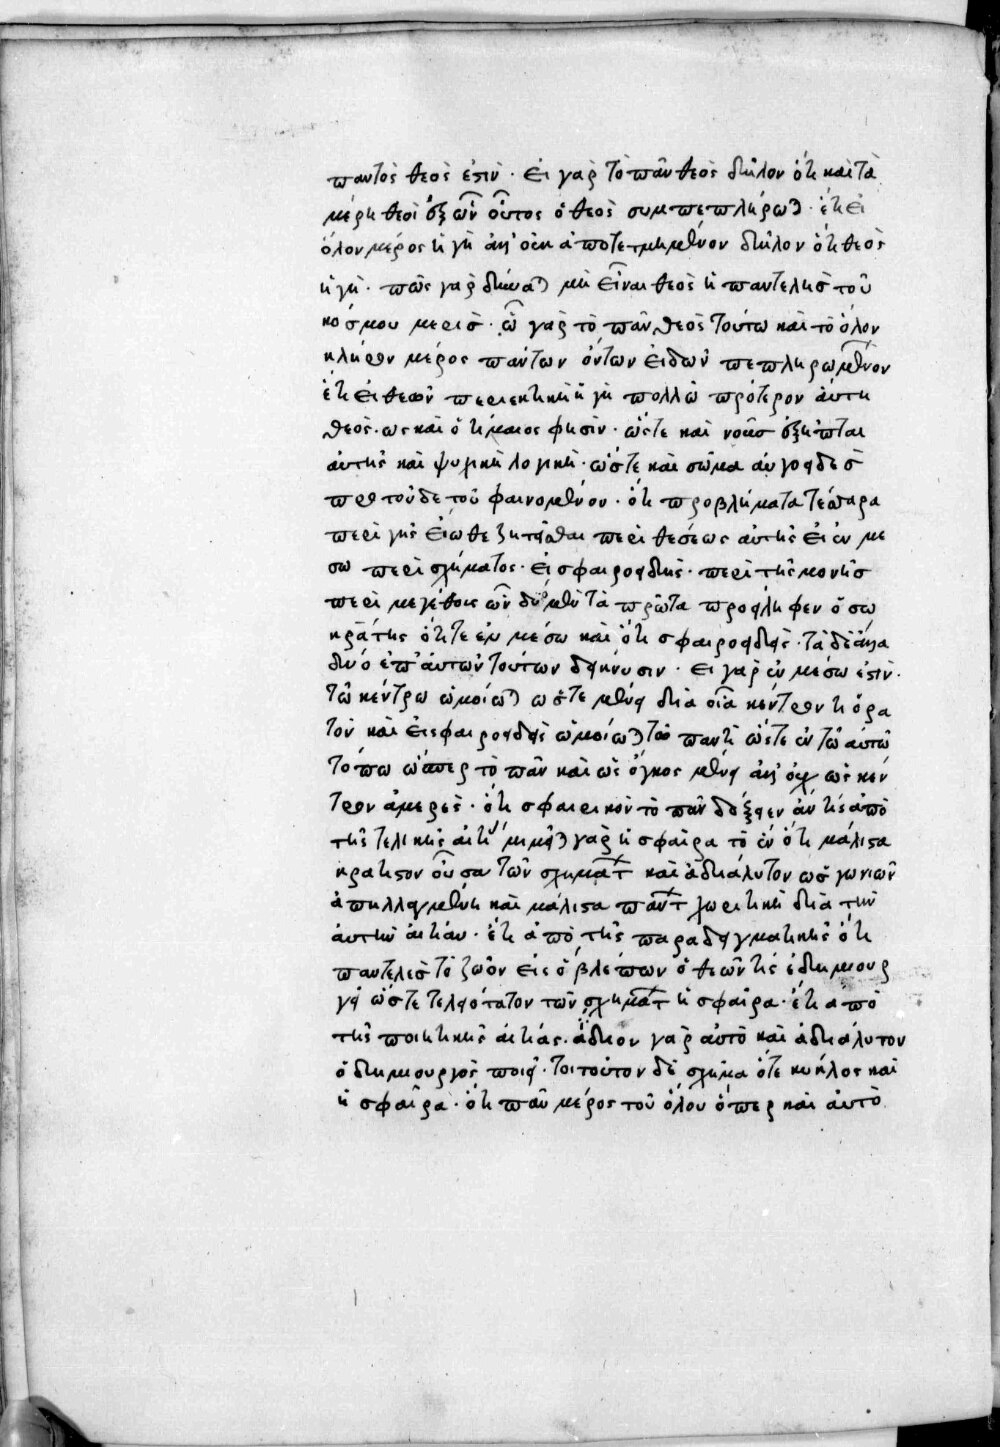 παντὸς θεός ἐστιν· εἰ γὰρ τὸ πᾶν θεὸς δῆλον ὅτι καὶ τὰ
μέρη θεοὶ ἐξ ὧν οὗτος ὁ θεὸς συμπεπλήρωται· ἔτι εἰ
ὅλον μέρος ἡ γῆ ἀλλ' οὐκ ἀποτετμημένον δῆλον ὅτι θεὸς
ἡ γῆ· πῶς γὰρ δύναται μὴ εἶναι θεὸς ἡ παντελὴς τοῦ
κόσμου μερὶς· ᾧ γὰρ τὸ πᾶν θεὸς τούτω καὶ τὸ ὅλον
μέρος πάντων ὄντων εἰδῶν πεπληρωμένον
ἔτι εἰ θεῶν περιεκτικὴ ἡ γῆ πολλῶ πρότερον αὐτὴ
θεός· ὡς καὶ ὁ τίμαιος φησὶν· ὥστε καὶ νοῦς ἐξήπται
αὐτῆς καὶ ψυχὴ λογικὴ· ὥστε καὶ σῶμα αὐγοειδὲς
πρὸ τοῦδε τοῦ φαινομένου· ὅτι προβλήματα τέσσαρα
περὶ γῆς εἴωθε ζητεῖσθαι περὶ θέσεως αὐτῆς εἰ ἐν μέ
σω περὶ σχήματος· εἰ σφαιροειδὴς· περὶ τῆς μονῆς
περὶ μεγέθους ὧν δύο μὲν τὰ πρῶτα προσείληφεν ὁ σω
κράτης ὅτι τε ἐν μέσω καὶ ὅτι σφαιροειδὴς· τὰ δὲ ἄλλα
δύο ἐπ' αὐτῶν τούτων δείκνυσιν· εἰ γὰρ ἐν μέσω ἐστὶν·
τῶ κέντρω ὡμοίωται ὥστε μένει διὰ οἷα κέντρον τι ὁρα
τὸν καὶ εἰ σφαιροειδὴς ὡμοίωται τῶ παντὶ ὥστε ἐν τῶ αὐτῶ
τόπω ὥσπερ τὸ πᾶν καὶ ὡς ὄγκος μένει ἀλλ' οὐχ ὡς κέν
τρον ἀμερὲς· ὅτι σφαιρικὸν τὸ πᾶν δόξειεν ἄν τις ἀπὸ
τῆς τελικῆς αἰτίας μιμεῖται γὰρ ἡ σφαῖρα τὸ ἓν ὅτι μάλιστα
κράτιστον οὖσα τῶν σχημάτων καὶ ἀδιάλυτον ὡς γωνιῶν
ἀπηλλαγμένη καὶ μάλιστα πάντων χωρητικὴ διὰ τὴν
αὐτὴν αἰτίαν· ἔτι ἀπὸ τῆς παραδειγματικῆς ὅτι
παντελὲς τὸ ζῶον εἰς ὃ βλέπων ὁ θεῶν τις ἐδημιούρ
γει ὥστε τελειότατον τῶν σχημάτων ἡ σφαῖρα· ἔτι ἀπὸ
τῆς ποιητικῆς αἰτίας· ἀΐδιον γὰρ αὐτὸ καὶ ἀδιάλυτον
ὁ δημιουργὸς ποιεῖ· τοιοῦτον δὲ σχῆμα ὅτε κύκλος καὶ
ἡ σφαῖρα· ὅτι πᾶν μέρος τοῦ ὅλου ὅπερ καὶ αὐτὸ